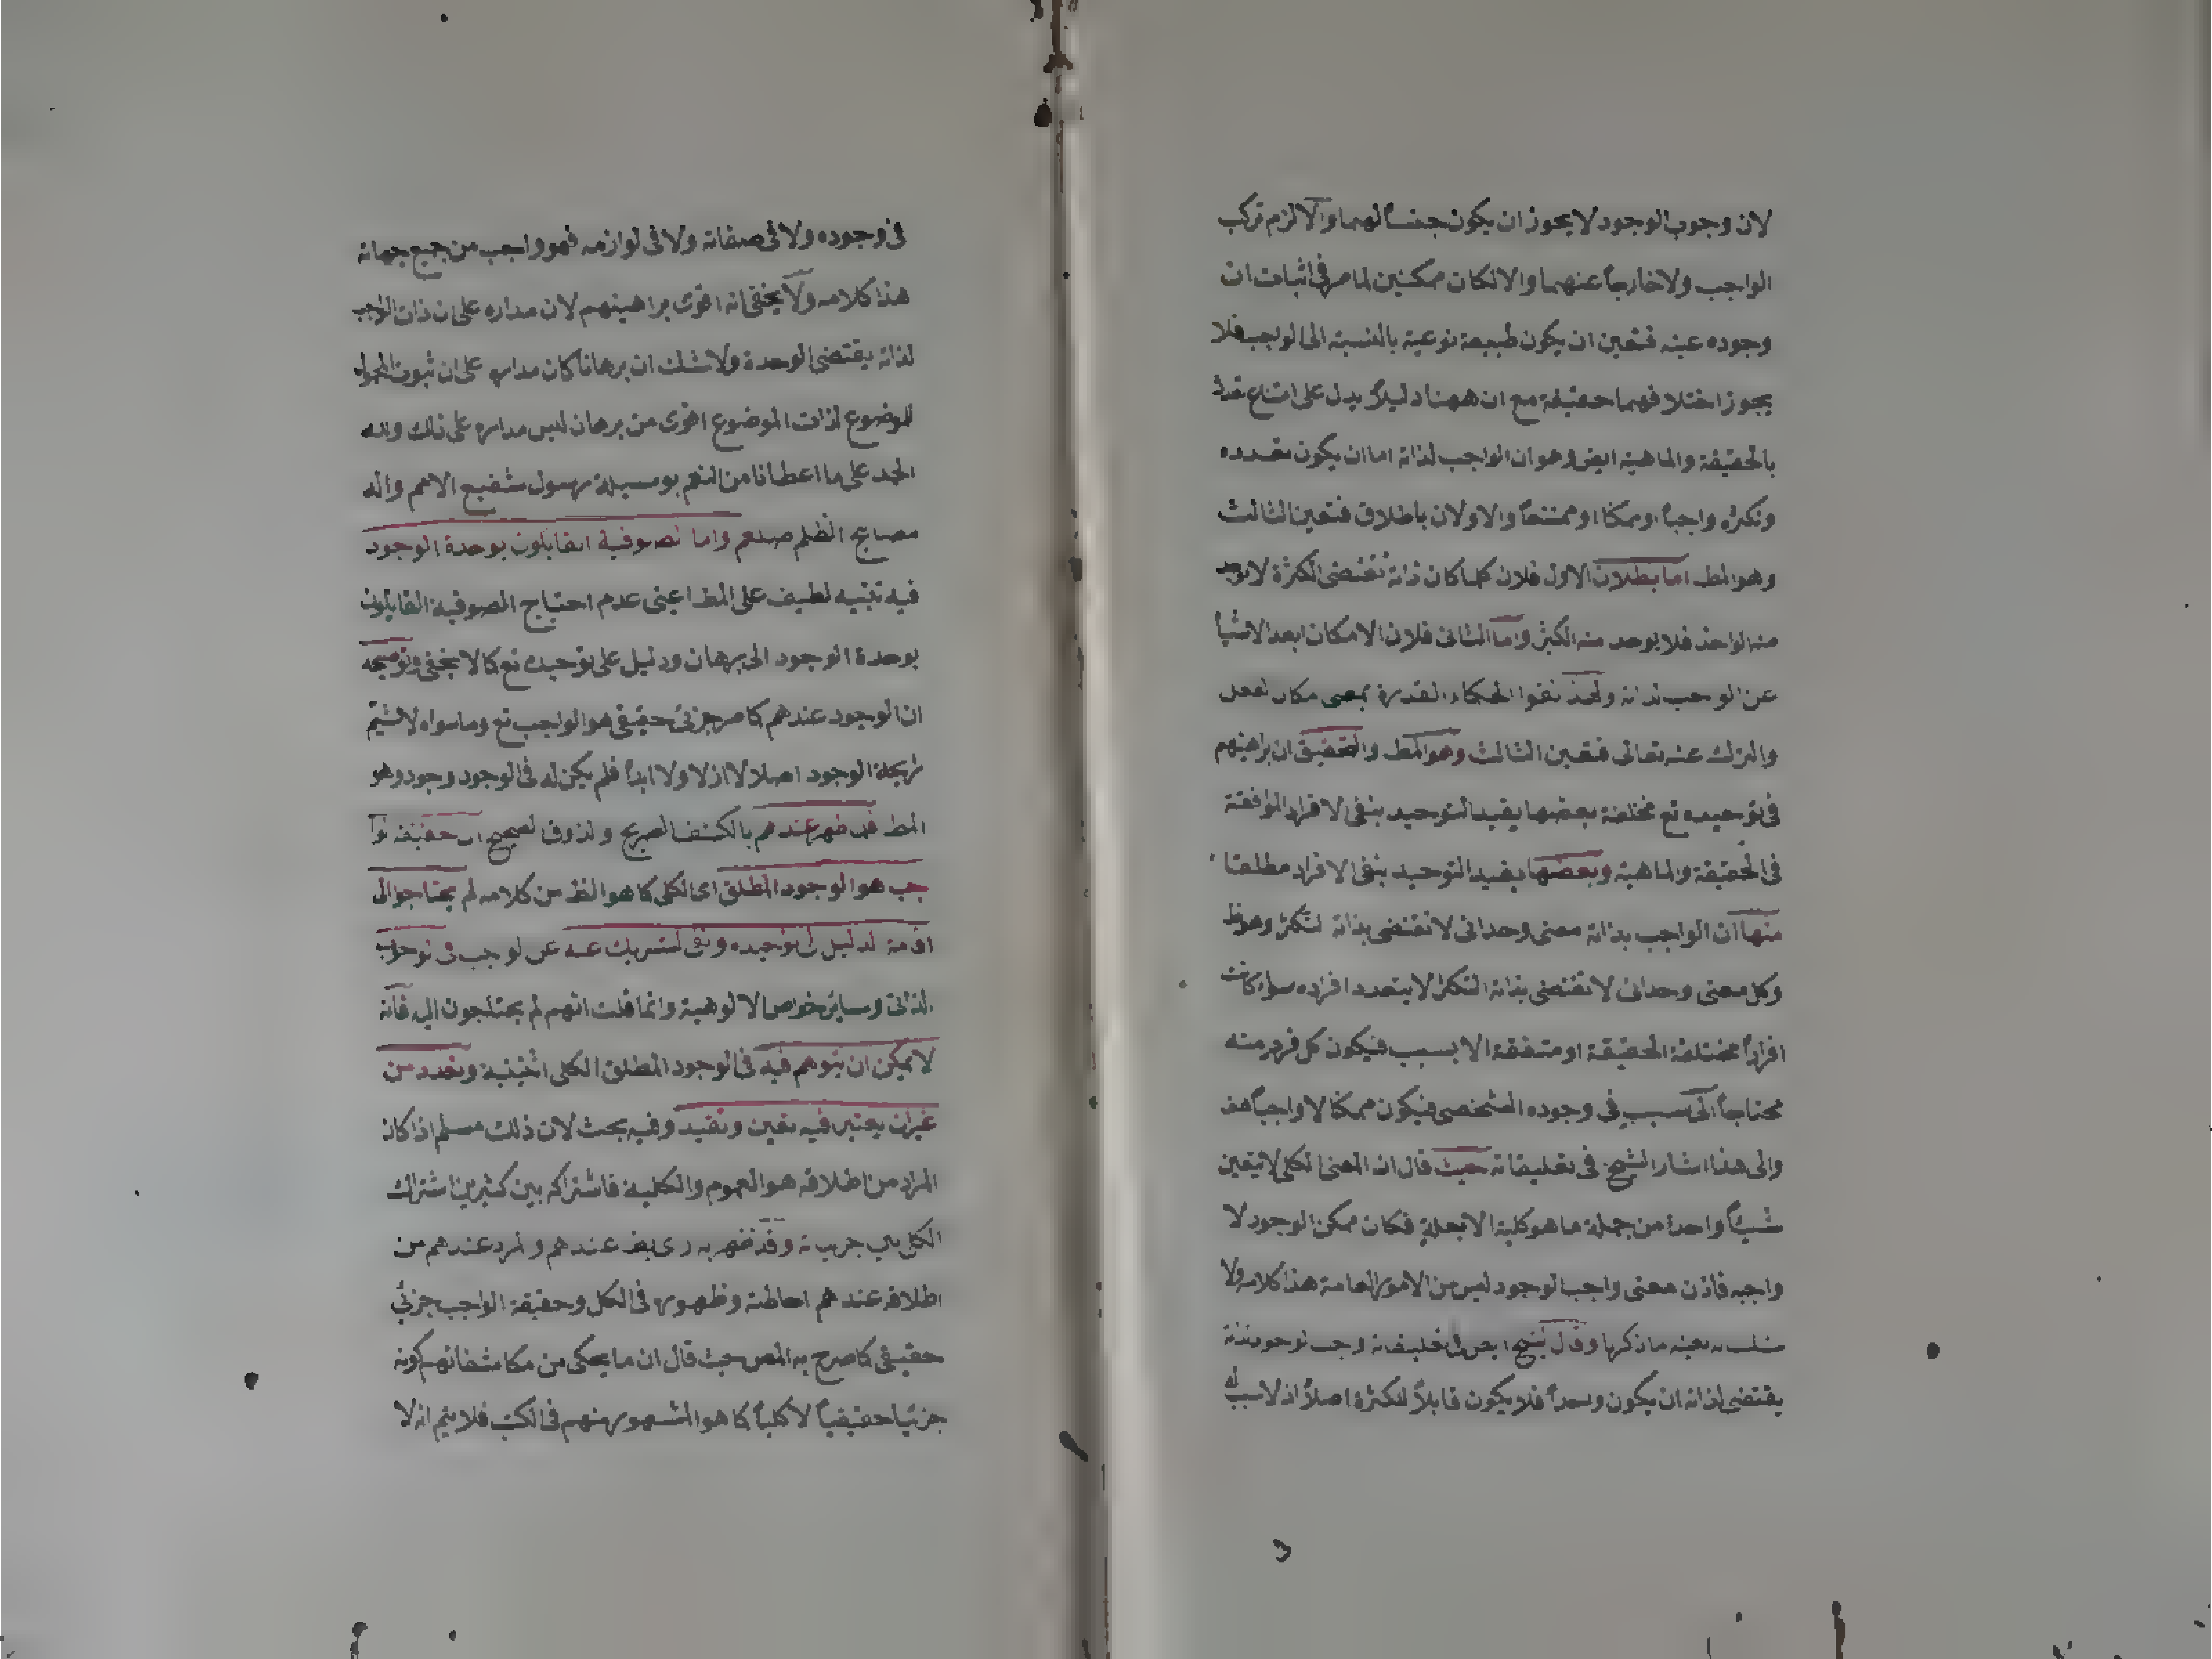 لان وجوب الوجود لا يجوز ان يكون جنساً لهما والا لزم تركب
الواجب ولا خارجاً عنهما والا لكان ممكنين لما مر في اثبات ان
وجوده عينه فتعين ان يكون طبيعة نوعية بالنسبة الى الواجب فلا
يجوز اختلافهما حقيقة مع ان ههنا دليلاً يدل على امتناع تعدد
بالحقيقة والماهية ايض وهو ان الواجب لذاته اما ان يكون تعدده
وتكثره واجباً او ممكنا او ممتنعاً والاولان باطلان فتعين الثالث
وهو المط اما بطلان الاول فلان كلما كان ذاته تقتضى الكثرة لا يوجد
منه الواحد فلا يوجد منه الكثير واما الثانى فلان الامكان ابعد الاشيأ
عن الواجب لذاته ولهذا نفوا الحكماء القدرة بمعنى مكان لفعل
والترك عنه تعالى فتعين الثالث وهو المط والتحقيق ان براهينهم
فى توحيده تع مختلفة بعضها يفيد التوحيد بنفى الافراد الموافقة
فى الحقيقة والماهية وبعضها يفيد التوحيد بنفى الافراد مطلقا
منها ان الواجب بذاته معنى وحدانى لا تقتضى بذاته التكثر وهو ظ
وكل معنى وحدانى لا تقتضى بذاته التكثر لا يتعدد افراده سواء كانت
افراداً مختلفة الحقيقة او متفقة الا بسبب فيكون كل فرد منه
محتاجاً الى سبب فى وجوده الشخصى فيكون ممكنا لا واجباً هف
والى هذا اشار الشيخ فى تعليقاته حيث قال ان المعنى الكلى لا يتعين
شيئاً واحدا من جملة ما هو كلية الا بعلةٍ فكان ممكن الوجود لا
واجبه فاذن معنى واجب الوجود ليس من الامور العامة هذا كلامه ولا
بعينه ما ذكرها وقال الشيخ ايض فى تعليقاته واجب الوجود بذاته
يقتضى لذاته ان يكون واحداً فلا يكون قابلاً للكثرة اصلاً اذ لا سبب له
فى وجوده ولا فى صفاته ولا فى لوازمه فهو واجب من جميع جهاته
هذا كلامه ولا يخفى انه اقوى براهينهم لان مداره على ان ذات الواجب
لذاته يقتضى الوحدة ولا شك ان برهانا كان مداره على ان ثبوت المحمول
للموضوع لذات الموضوع اقوى من برهان ليس مداره على ذلك ولله
الحمد على ما اعطانا من النعم بوسيلة رسول شفيع الامم واله
مصابيح الظلم صلعم واما الصوفية القايلون بوحدة الوجود
فيه تنبيه لطيف على المط اعنى عدم احتياج الصوفية القايلون
بوحدة الوجود الى برهان ودليل على توحيده تع كما لا يخفى وتوضيحه
ان الوجود عندهم كما مر جزئى حقيقى هو الواجب تع وما سواه لا يشم
رايحة الوجود اصلا لا ازلا ولا ابدا فلم يكن له فى الوجود وجود وهو
المط قد ظهر عندهم بالكشف الصريح والذوق الصحيح ان حقيقة الوا
جب هو الوجود المطلق اى الكلى كما هو الظ من كلامه لم يحتاجوا الى
اقامة الدليل على توحيده ونفى الشريك عنه عن الواجب فى الوجوب
الذاتى وساير خواص الالوهية وانما قلت انهم لم يحتاجون اليه فانه
لا يمكن ان يتوهم فيه فى الوجود المطلق الكلى اثنينية وتعدد من
غير ان يعتبر فيه تعين وتقيد وفيه بحث لان ذلك مسلم اذا كان
المراد من اطلاقه هو العموم والكلية فاشتراكه بين كثيرين اشتراك
الكلى بين جزيياته وقد عندهم والمراد عندهم من
اطلاقه عندهم احاطته وظهوره فى الكل وحقيقة الواجب جزئى
حقيقى كما صرح به المص حيث قال ان ما يحكى من مكاشفاتهم كونه
جزئيا حقيقياً لا كلياً كما هو المشهور منهم فى الكتب فلا يتم انه لا